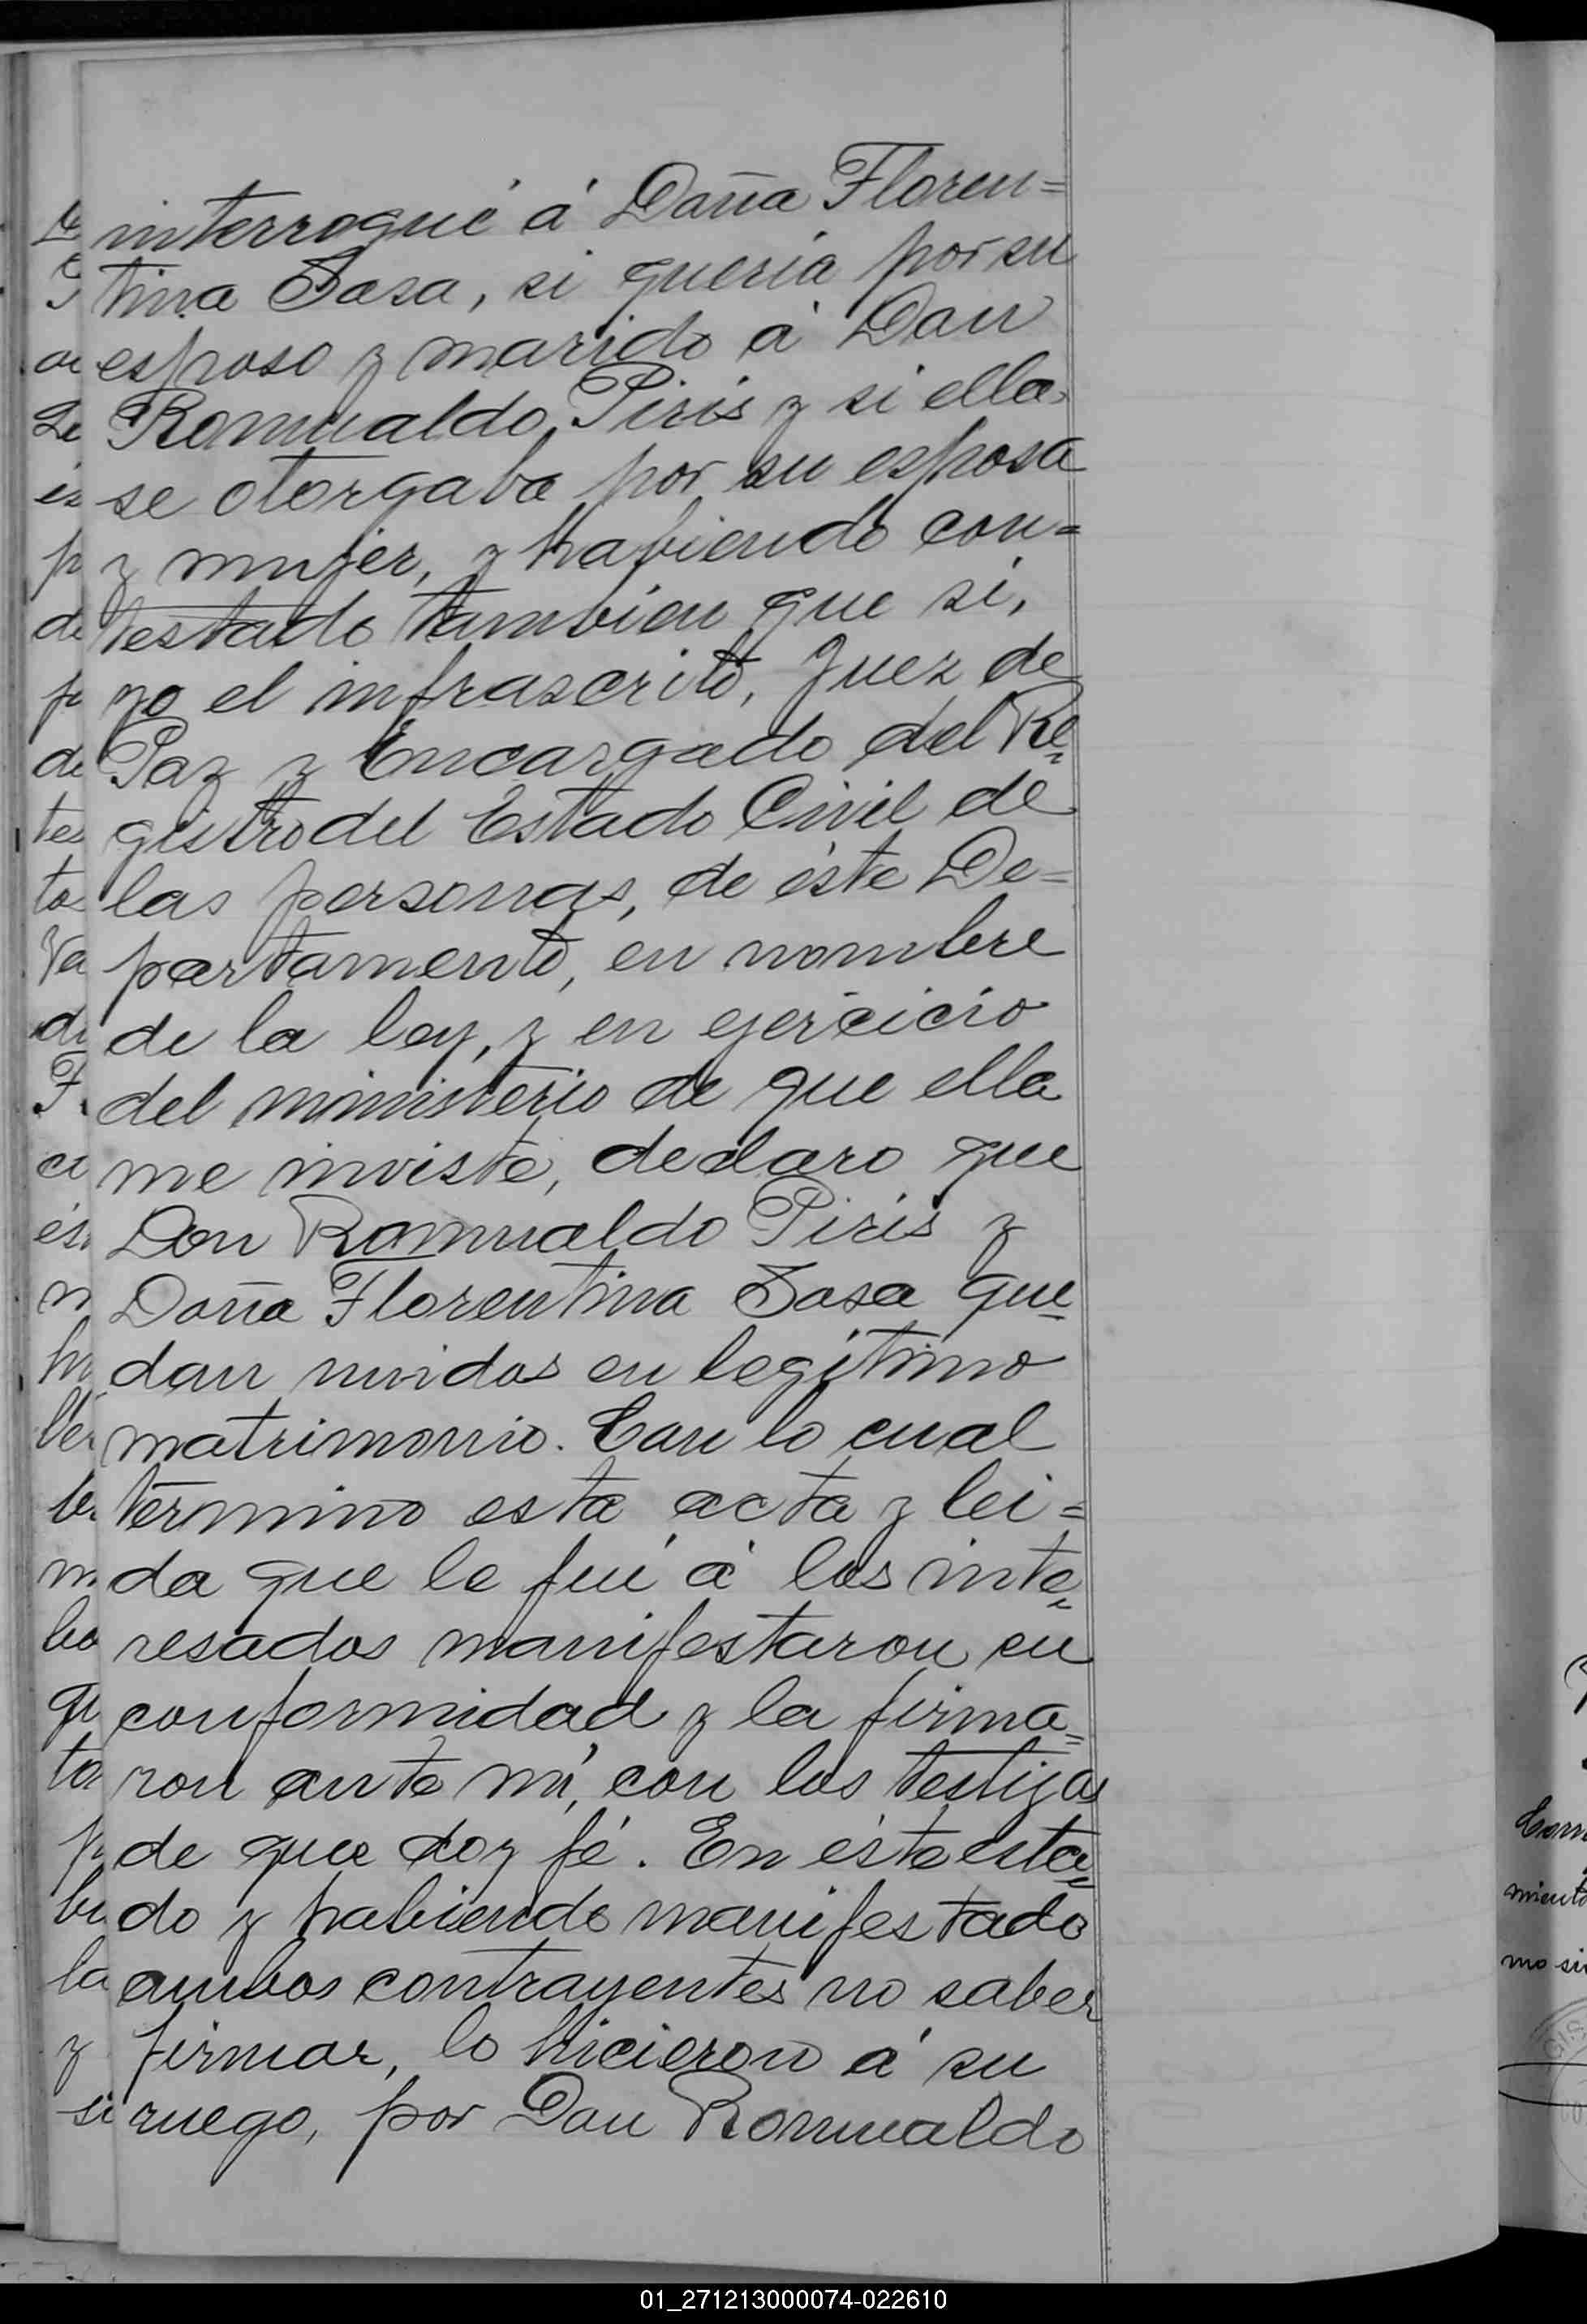 interrogué á Doña Floren=
tina Sosa, si queria por su
esposo y marido á Don
Romualdo Piris y si ella
se otorgaba por su esposa
y mujer, y habiendo con=
testado tambien que si,
yo el infrascrito, Juez de
Paz y Encargado del Re=
gistro del Estado Civil de
las personas, de éste De=
partamento, en nombre
de la ley, y en ejercicio
del ministerio de que ella
me inviste, declaro que
Don Romualdo Piris y
Doña Florentina Sosa que=
dan unidos en legítimo
matrimonio. Con lo cual
termino esta acta y lei=
da que le fué á los inte=
resados manifestaron su
conformidad y la firma=
ron ante mí, con los testigos
de que doy fé. En éste esta=
do y habiendo manifestado
ambos contrayentes no saber
firmar, lo hicieron á su
ruego, por Don Romualdo
01_271213000074-022610